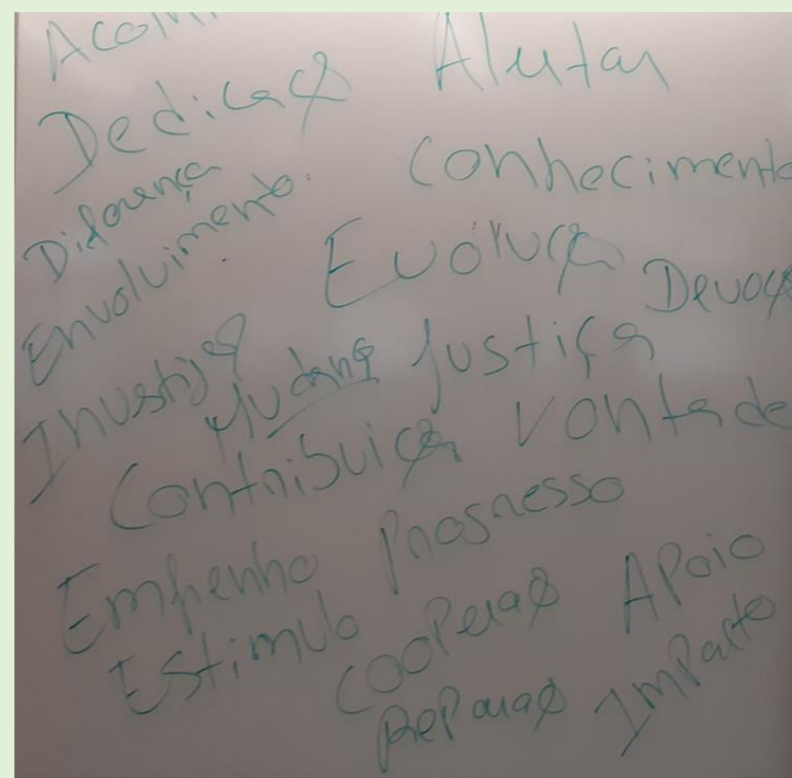 Dedicação Alutar
Diferença Conhecimento
Envolvimento. Evolução
Devoção
Mudança Justiça
Contribuição Vontade
Empenho Progresso
Estimulo Cooperação Apoio
Reparação Impacto